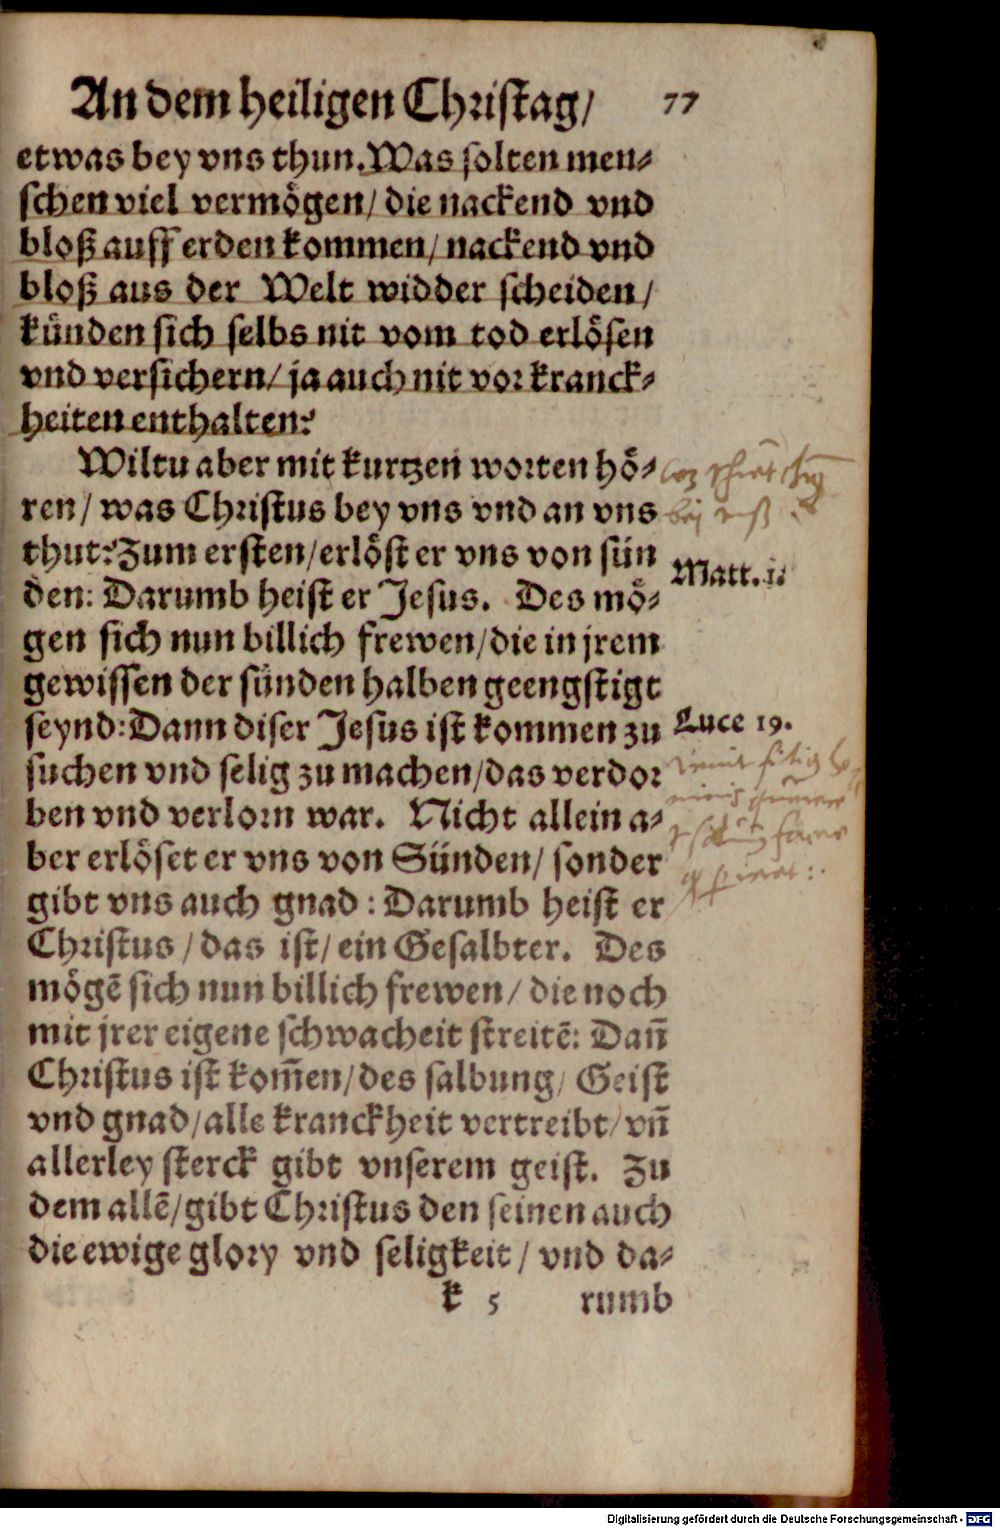 An dem heiligen Christag/ 77
etwas bey vns thun. Was solten men⸗
schen viel vermögen/ die nackend vnd
bloß auff erden kommen/ nackend vnd
bloß aus der Welt widder scheiden/
künden sich selbs nit vom tod erlösen
vnd versichern/ ja auch nit vor kranck⸗
heiten enthalten?
Wiltu aber mit kurtzen worten hö⸗
ren/ was Christus bey vns vnd an vns
thut? Zum ersten/ erlöst er vns von sün
Matt. 1.
den: Darumb heist er Jesus. Des mö⸗
gen sich nun billich frewen/ die in jrem
gewissen der sünden halben geengstigt
seynd: Dann diser Jesus ist kommen zu
Luce 19.
suchen vnd selig zu machen/ das verdor
ben vnd verlorn war. Nicht allein a⸗
ber erlöset er vns von Sünden/ sonder
gibt vns auch gnad: Darumb heist er
Christus/ das ist/ ein Gesalbter. Des
mögẽ sich nun billich frewen/ die noch
mit jrer eigene schwacheit streitẽ: Dañ
Christus ist kom̃en/ des salbung/ Geist
vnd gnad/ alle kranckheit vertreibt/ vñ
allerley sterck gibt vnserem geist. Zu
dem allẽ/ gibt Christus den seinen auch
die ewige glory vnd seligkeit/ vnd da⸗
k 5 rumb
Digitalisierung gefördert durch die Deutsche Forschungsgemeinschaft - DFG